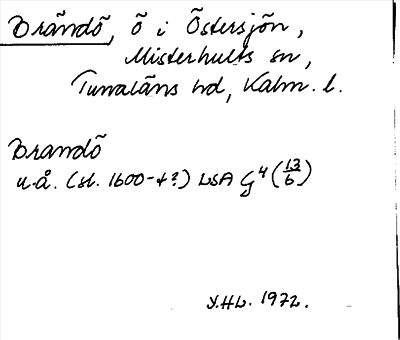 Brändö, ö i Östersjön,
Misterhults sn,
Tunaläns hd, Kalm. l.
Brandö
u.å. (sl. 1600-t?) LSA G4 (13/6)
Y.HL. 1972.